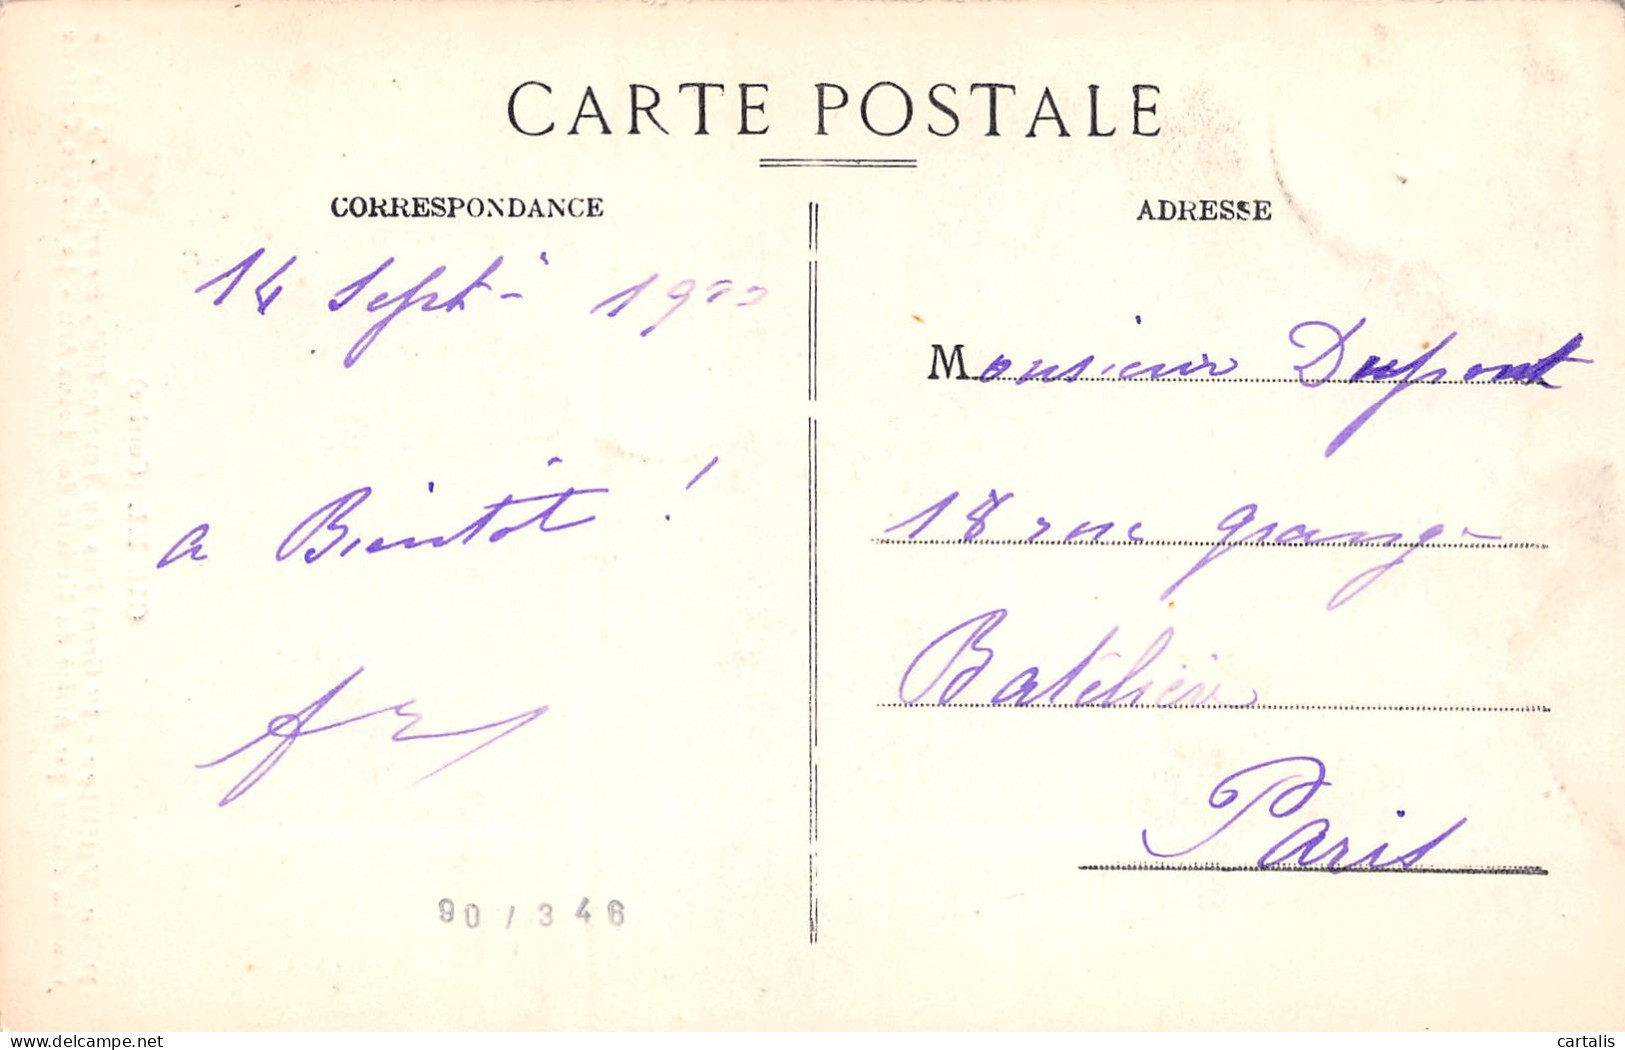 CARTE POSTALE
CORRESPONDANCE
14 Sept. 19
a Bientot !
90 / 346
ADRESSE
Monsieur Dupont
18 rue grange
Batelière
Paris
delcampe.net
cartalis